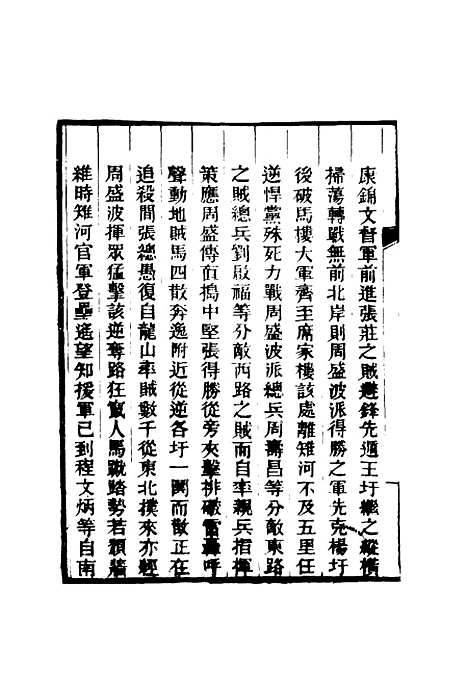 康錦文督軍前進張莊之賊避鋒先遁王圩繼之縱橫
掃蕩轉戰無前北岸則周盛波派得勝之軍先克楊圩
後破馬樓大軍齊至席家樓該處離雉河不及五里任
逆悍黨殊死力戰周盛波派總兵周壽昌等分敵東路
之賊總兵劉啟福等分敵西路之賊而自率親兵指揮
策應周盛傳直搗中堅張得勝從旁夾擊排礮雷轟呼
聲動地賊馬四散奔逸附近從逆各圩一鬨而散正在
追殺間張總愚復自龍山率賊數千從東北撲來亦經
周盛波揮眾猛擊該逆奪路狂竄人馬蹴踏勢若頹牆
維時雉河官軍登壘遙望知援軍已到程文炳等自南